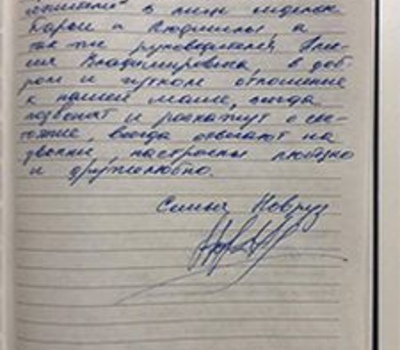 в лице сиделок
и Людмилы, а
так же руководителя,
Владимировна, в доб-
ром и чутком отношение
к нашей маме, всегда
позвонят и расскажут о сос-
тояние, всегда отвечают на
звонки, настроены любезно
и дружелюбно.
Семья Новруз